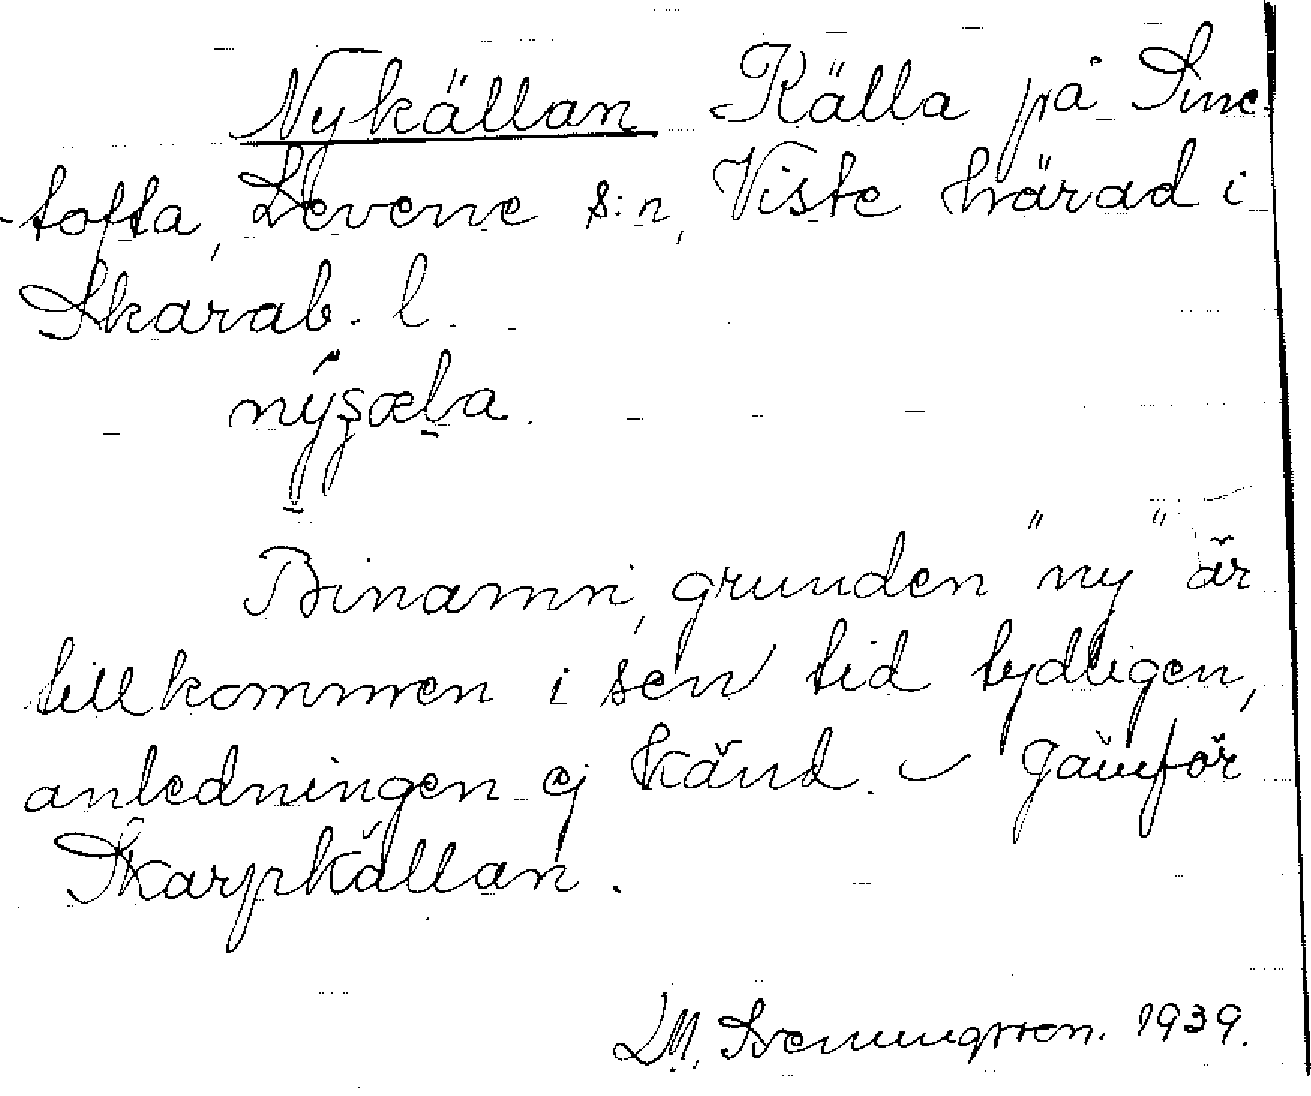 Nykällan Källa på Sme-
tofta, Levene s:n, Viste härad i
Skarab. l.
nýʂæla.
Binamn, grunden "ny" är
tillkommen i sen tid tydligen,
anledningen ej känd. – Jämför
Skarpkällan.
L M. Svenungsson. 1939.